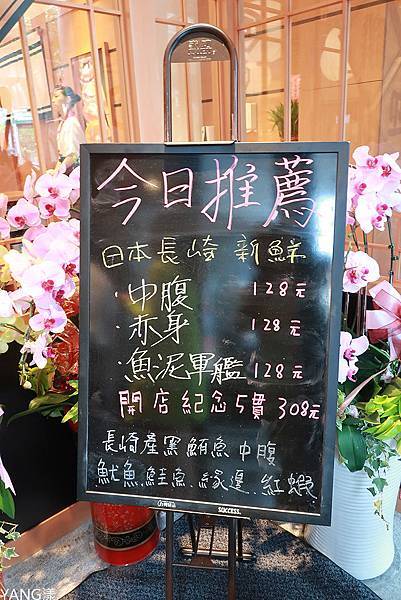 今日推薦
日本長崎 新鮮
·中腹 128元
·赤身 128元
·魚泥軍艦 128元
開店紀念5貫 308元
長崎產黑鮪魚中腹
魷魚.鮭魚.緣邊.紅蝦
SUCCESS.
YANG漾